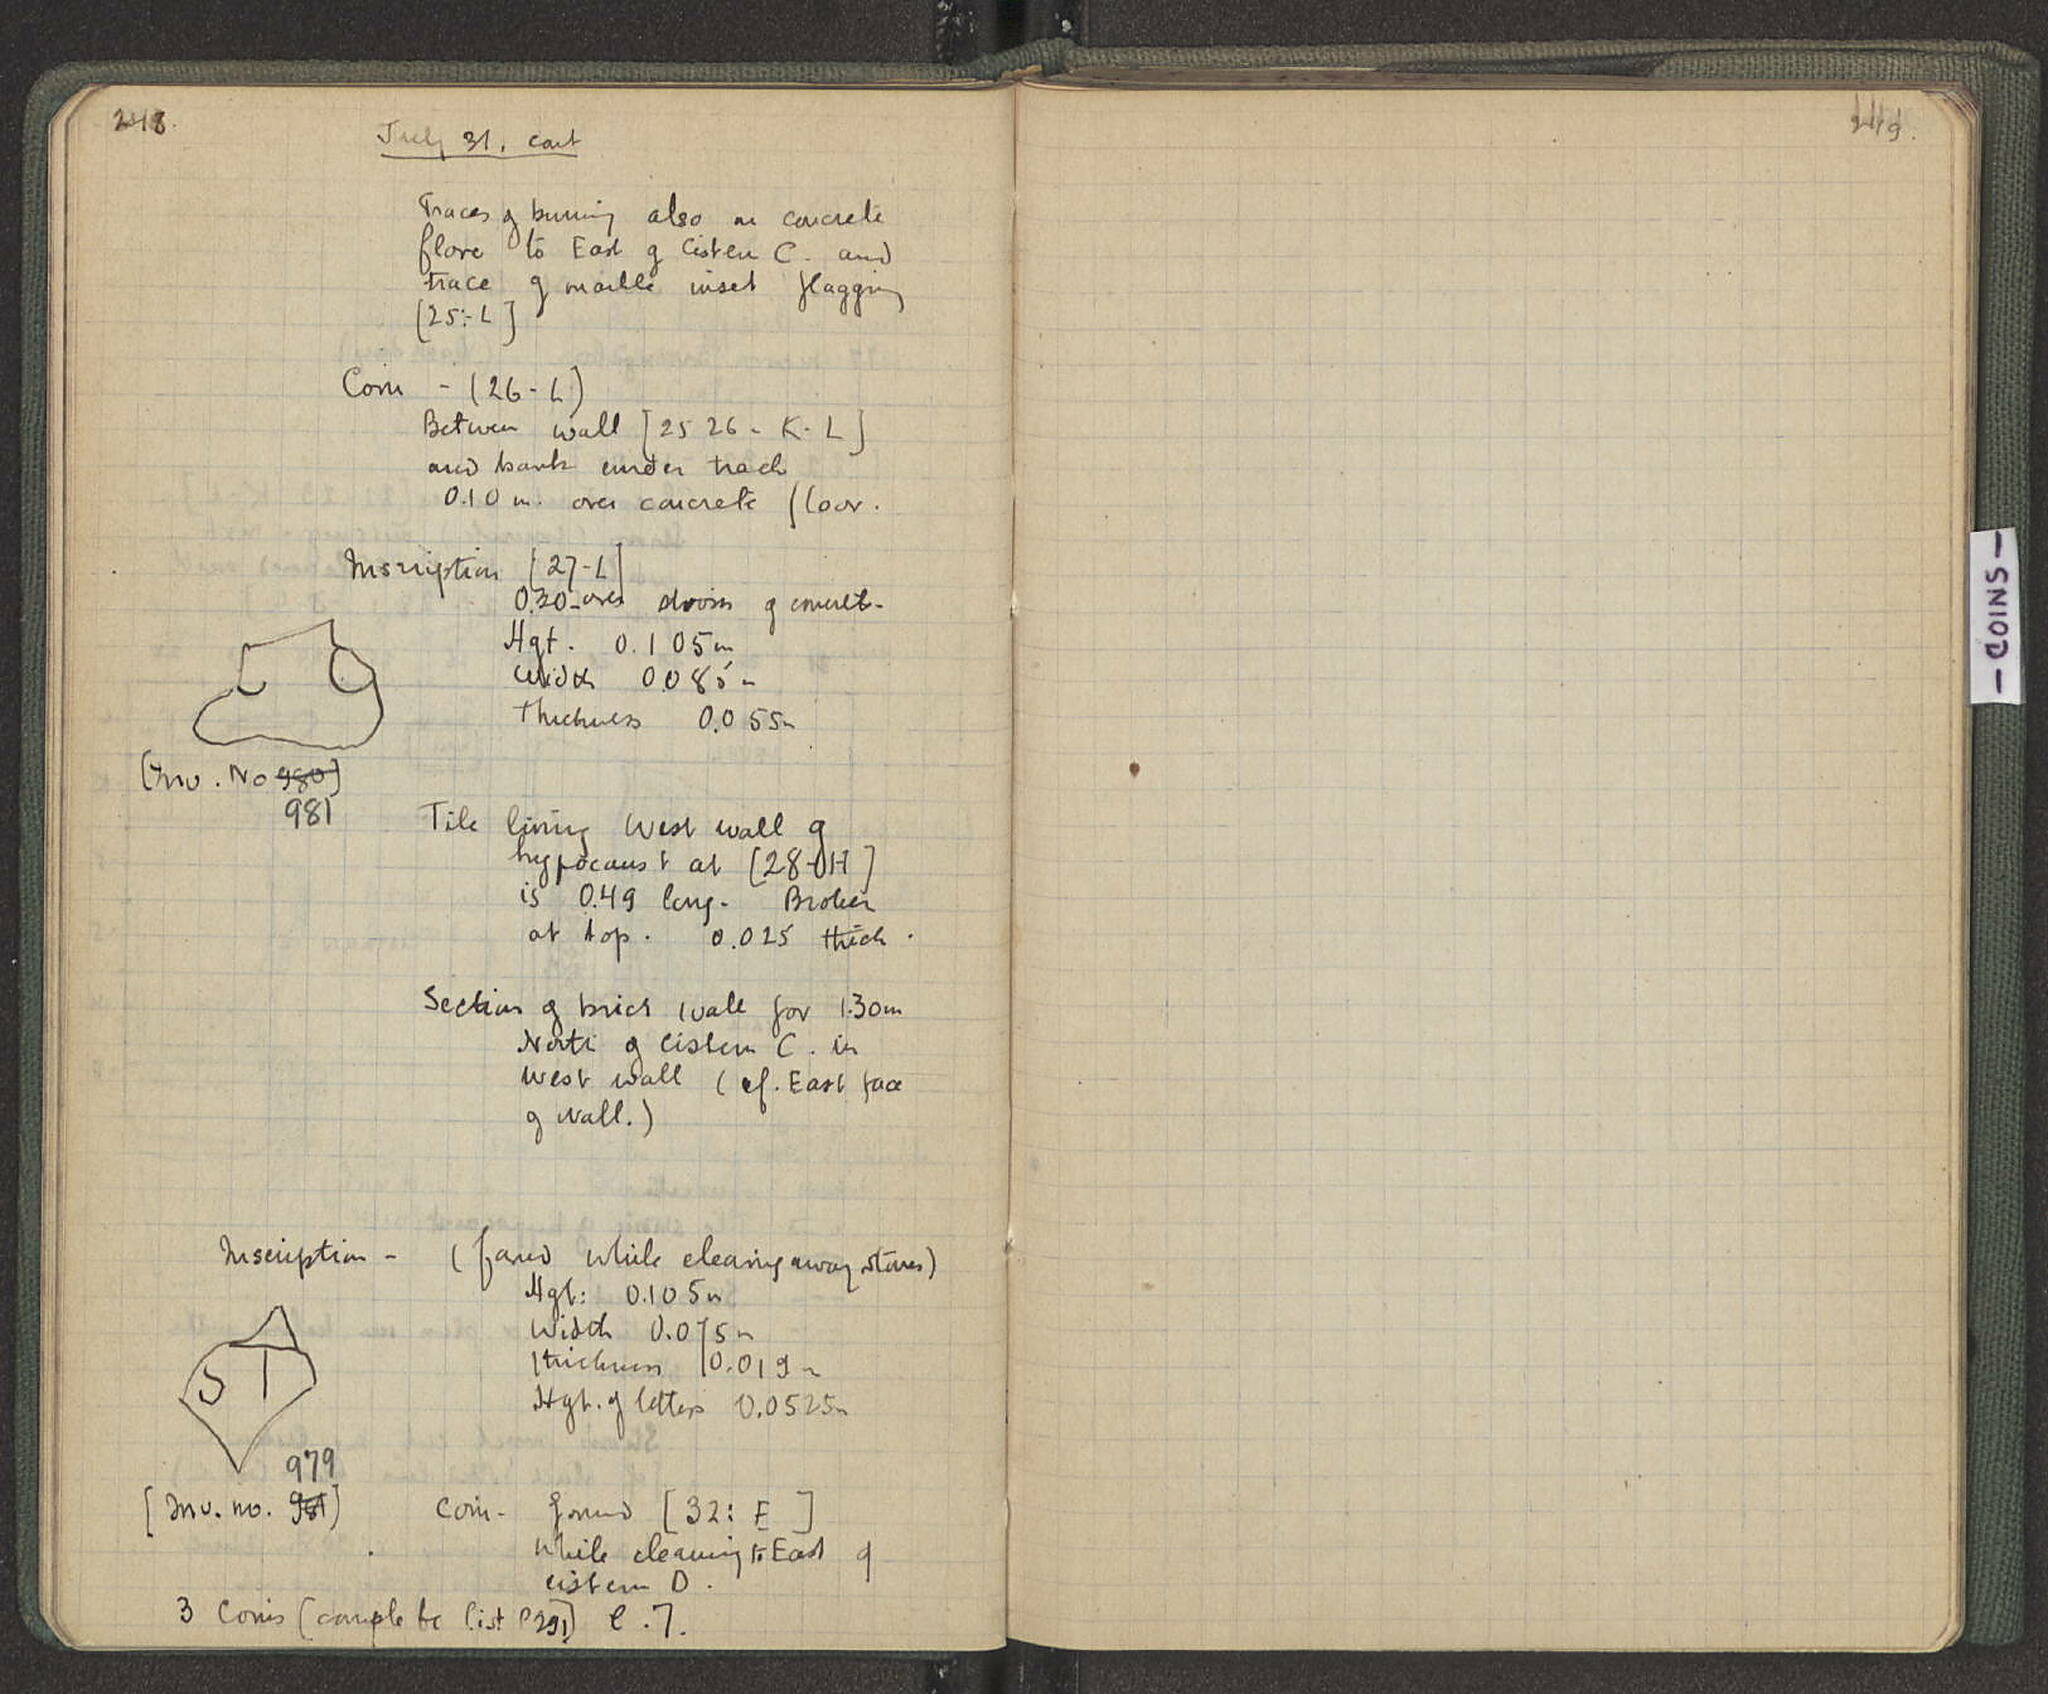 248.
July 31, cont
Traces of burning also on concrete
flore to East of Cistern C. and
trace of marble inset flagging
[25:-L]
Coin - (26-L)
Between wall [25 26 - K-L]
and bank under track
0.10 m. over concrete floor.
Inscription [27-L]
0.20 over of concrete
Hgt. 0.105m
Width 0.085m
Thickness 0.055m
[Inv. No 980]
981
Tile lining West wall of
hypocaust at [28-H]
is 0.49 long. Broken
at top. 0.025 thick.
Section of brick wall for 1.30m
North of cistern C. in
West wall (cf. East face
of wall.)
Inscription - (found while clearing away stones)
Hgt: 0.105m
Width 0.075m
thickness 0.019m
Hgt. of letters 0.0525m
S T
979
[Inv. no. 981]
Coin- found [32: E ]
While cleaning to East of
cistern D.
3 Coins (complete list P291) C.7.
249.
- COINS -